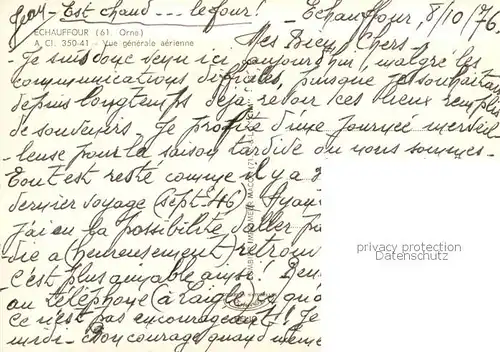 Est chaud ... le four!
Echauffour, 8/10/76
ECHAUFFOUR (61. Orne)
A. Cl. 350-41 - Vue générale aérienne
Mes Bien Chers -
- Je suis donc venu ici aujourd'hui, malgré les
communications difficiles, puisque je souhaitais
depuis longtemps déjà revoir ces lieux remplis
de souvenirs. Je profite d'une journée merveil-
- leuse pour la saison tardive où nous sommes -
Tout est resté comme il y a
dernier voyage (sept. 46). Ayan
j'ai eu la possibilité d'aller
die a (heureusement) retrou
c'est plus aimable ainsi!
au téléphone (à Laigle)
ce n'est pas encourageant!! Je
midi - Bon courage quand même
privacy protection
Datenschutz